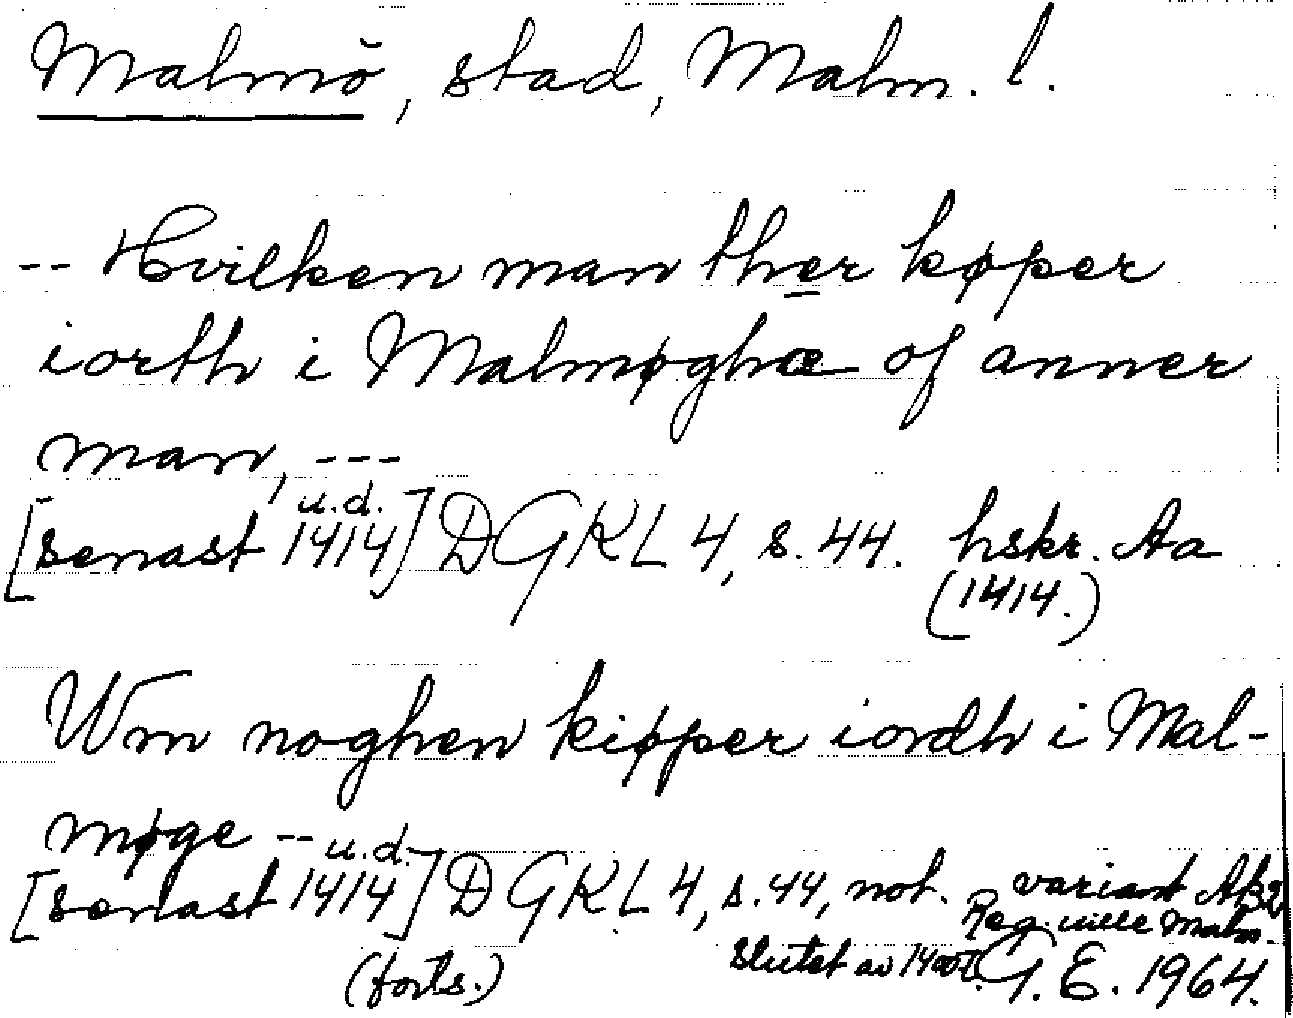 Malmö, stad, Malm. l.
-- Hvilken man ther køper
iorth i Malmøghæ of anner
man, ---
[senast u.d. 1414] DGKL 4, s. 44. hskr. Aa
(1414.)
Wm noghen kiøpper iordh i Mal-
møge --
[senast u.d. 1414] DGKL 4, s. 44, not. variant AB2
Reg. ville Malm.
(forts.) Slutet av 1400t. G. E. 1964.